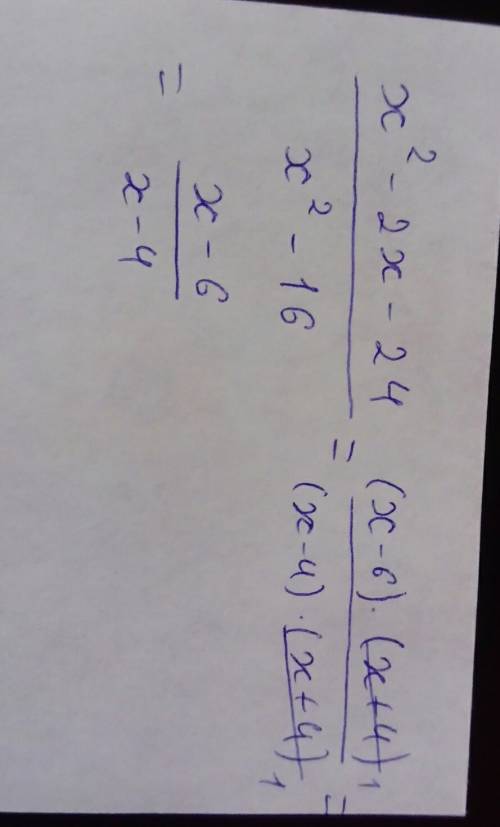 x² - 2x - 24
x² - 16
=
(x-6)·(x+4) 1
(x-4)·(x+4) 1
=
= 
x - 6
x - 4